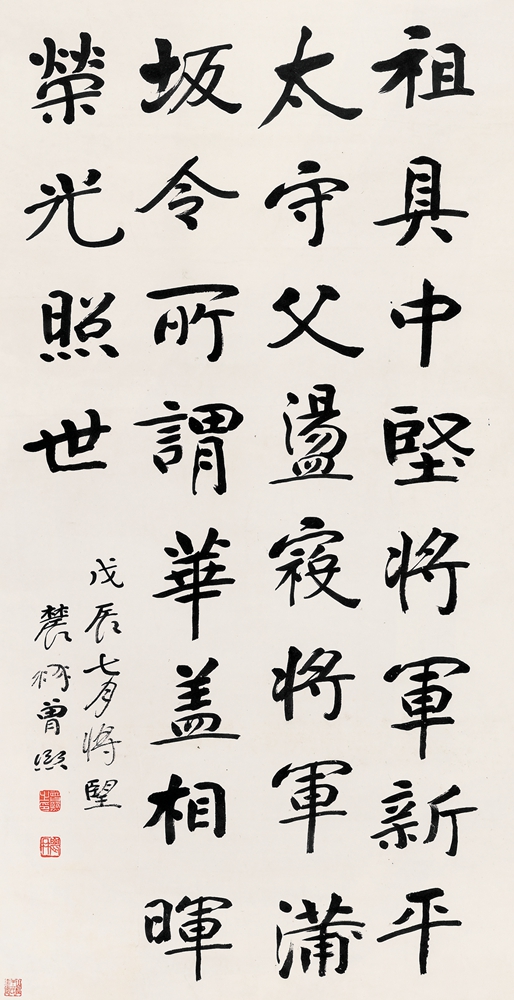 祖具中堅將軍新平
太守父盪寇將軍蒲
坂令所謂華盖相暉
榮光照世
戊辰七月將朢
農髯曾熙